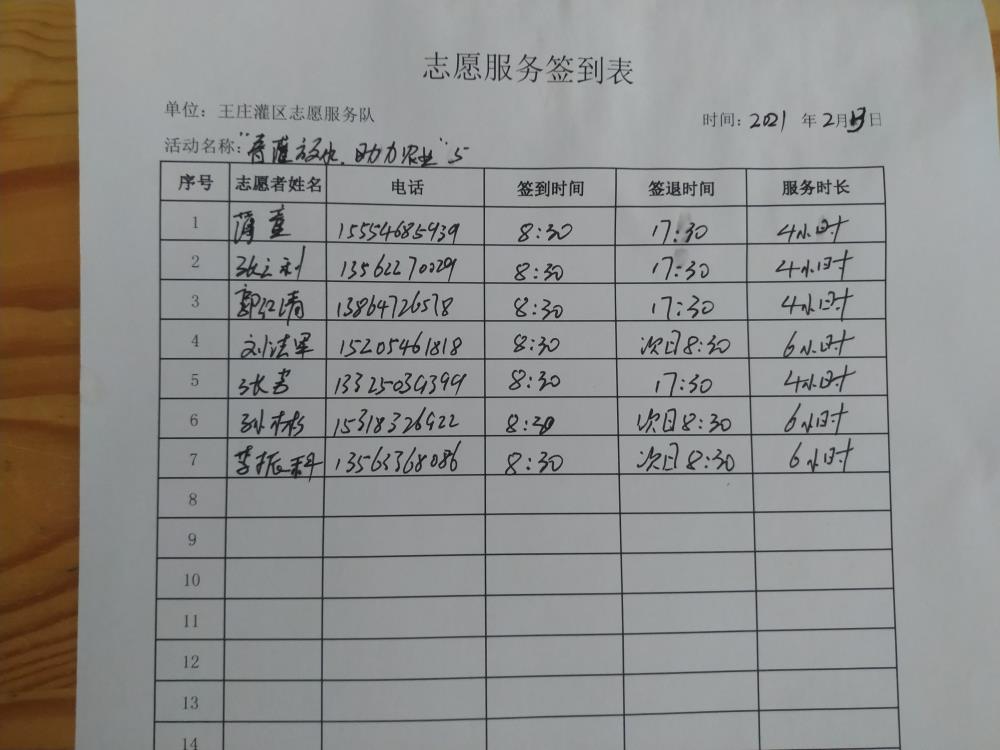 志愿服务签到表
单位：王庄灌区志愿服务队
时间：2021 年 2月 日
活动名称："春灌放水，助力农业"5
序号 志愿者姓名 电话 签到时间 签退时间 服务时长
1 15554685939 8:30 17:30 4小时
2 张立利 13562270029 8:30 17:30 4小时
3 郭红清 13864726578 8:30 17:30 4小时
4 刘洁军 15205461818 8:30 次日8:30 6小时
5 张芳 13325039399 8:30 17:30 4小时
6 孙彬彬 15318326922 8:30 次日8:30 6小时
7 李振科 13563368086 8:30 次日8:30 6小时
8
9
10
11
12
13
14